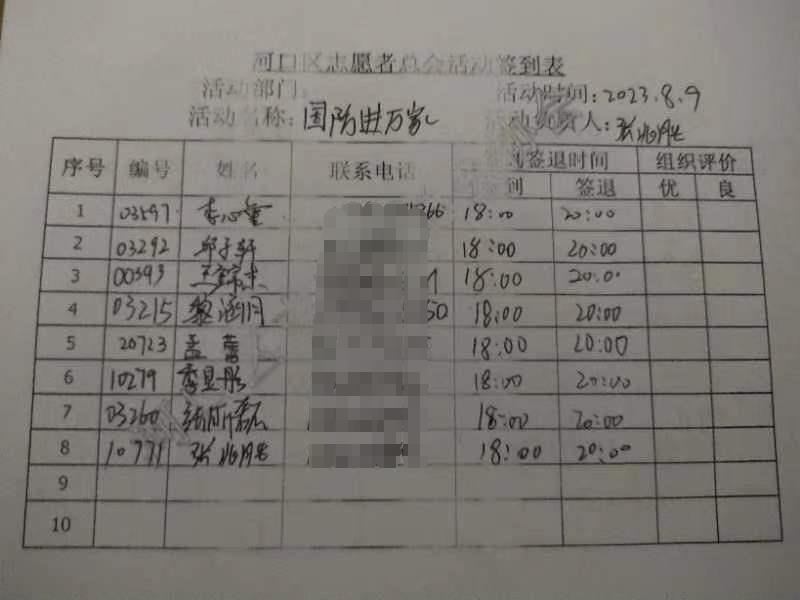 河口区志愿者总会活动签到表
活动部门:
活动时间:2023.8.9
活动名称:国防进万家
活动负责人:张兆胜
序号 编号 姓名 联系电话 签退时间 组织评价
到 签退 优 良
1 03597 李心 366 18:00 20:00
2 03292 邱子轩 18:00 20:00
3 00393 18:00 20:00
4 03215 黎涵月 50 18:00 20:00
5 20723 孟 蕾 18:00 20:00
6 10279 李昱彤 18:00 20:00
7 03260 18:00 20:00
8 10771 张兆胜 18:00 20:00
9
10